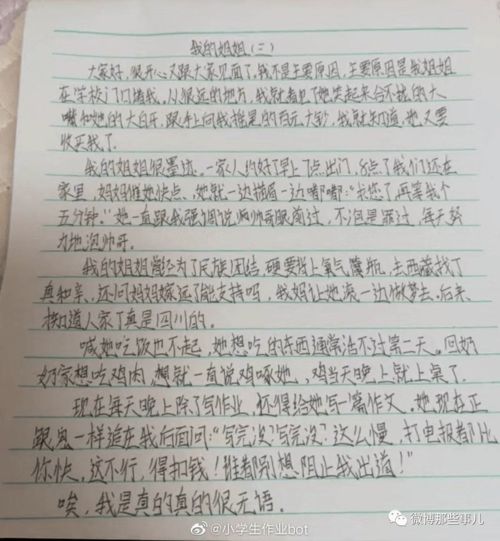 我的姐姐(二)
大家好,很开心又跟大家见面了,我不是主要原因,主要原因是我姐姐
在学校门口堵我。从很远的地方,我就看见了她笑起来合不拢的大
嘴和她的大白牙,跟手上向我摇晃的百元大钞,我就知道,她又要
收买我了。
我的姐姐很墨迹。一家人约好了早上7点出门,8点了我们还在
家里,妈妈催她快点,她就一边描眉一边嘟嘟:"快您了,再等我个
五分钟。"她一直跟我强调说帅哥眼前过,不泡是罪过,每天努
力地泡帅哥。
我的姐姐曾经为了民族团结,硬要背上氧气瓶,去西藏找了
真和亲,还问妈妈嫁远了能支持吗,我妈让她滚一边做梦去,后来
才知道人家丁真是四川的。
喊她吃饭也不起,她想吃的东西通常活不过第二天。回奶
奶家想吃鸡肉,想就一直说鸡啄她,鸡当天晚上就上桌了。
现在每天晚上除了写作业,还得给她写一篇作文。她现在正
跟鬼一样追在我后面问:"写完没?写完没?这么慢,打电报都比
你快,这不行,得扣钱!谁都别想阻止我出道!"
唉,我是真的真的很无语。
@小学生作业bot
微博那些事儿